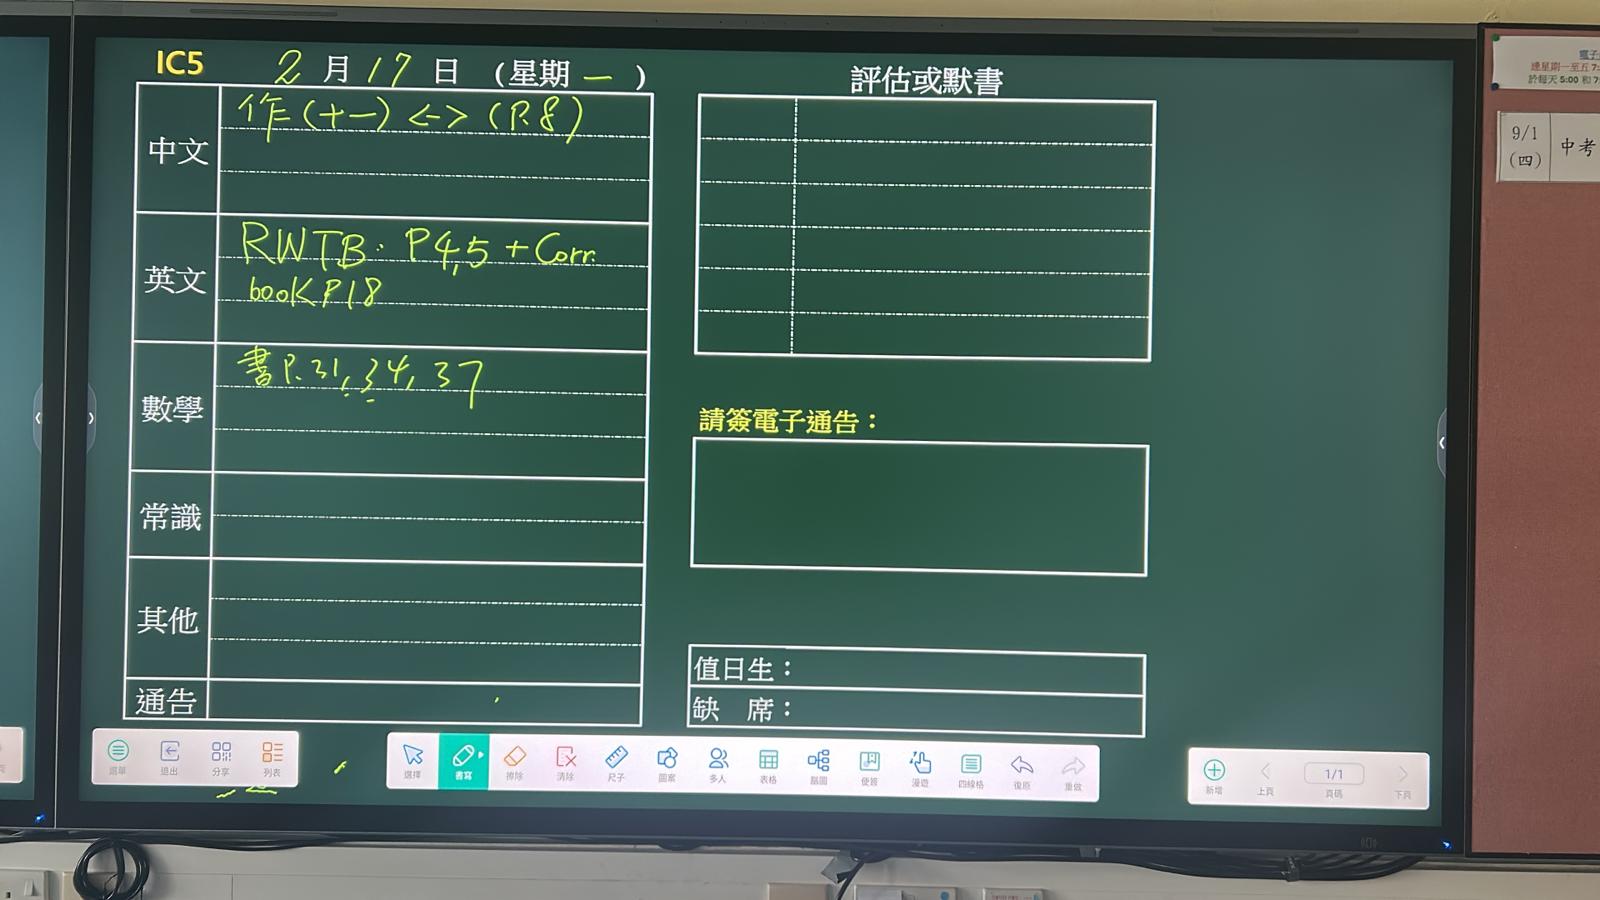 IC5 2月17日 (星期一)
中文
作(十一) <-> (P.8)
英文
RWTB. P4,5 + Corr.
book P18
數學
書P.31, 34, 37
常識
其他
通告
評估或默書
請簽電子通告：
值日生：
缺 席：
選單 退出 分享 列表
選擇 書寫 擦除 清除 尺子 圖案 多人 表格 腦圖 便簽 漫遊 四線格 復原 重做
新增 上頁 1/1 頁碼 下頁
電子
逢星期一至五 7:
於每天 5:00 和 7:
9/1
(四)
中考